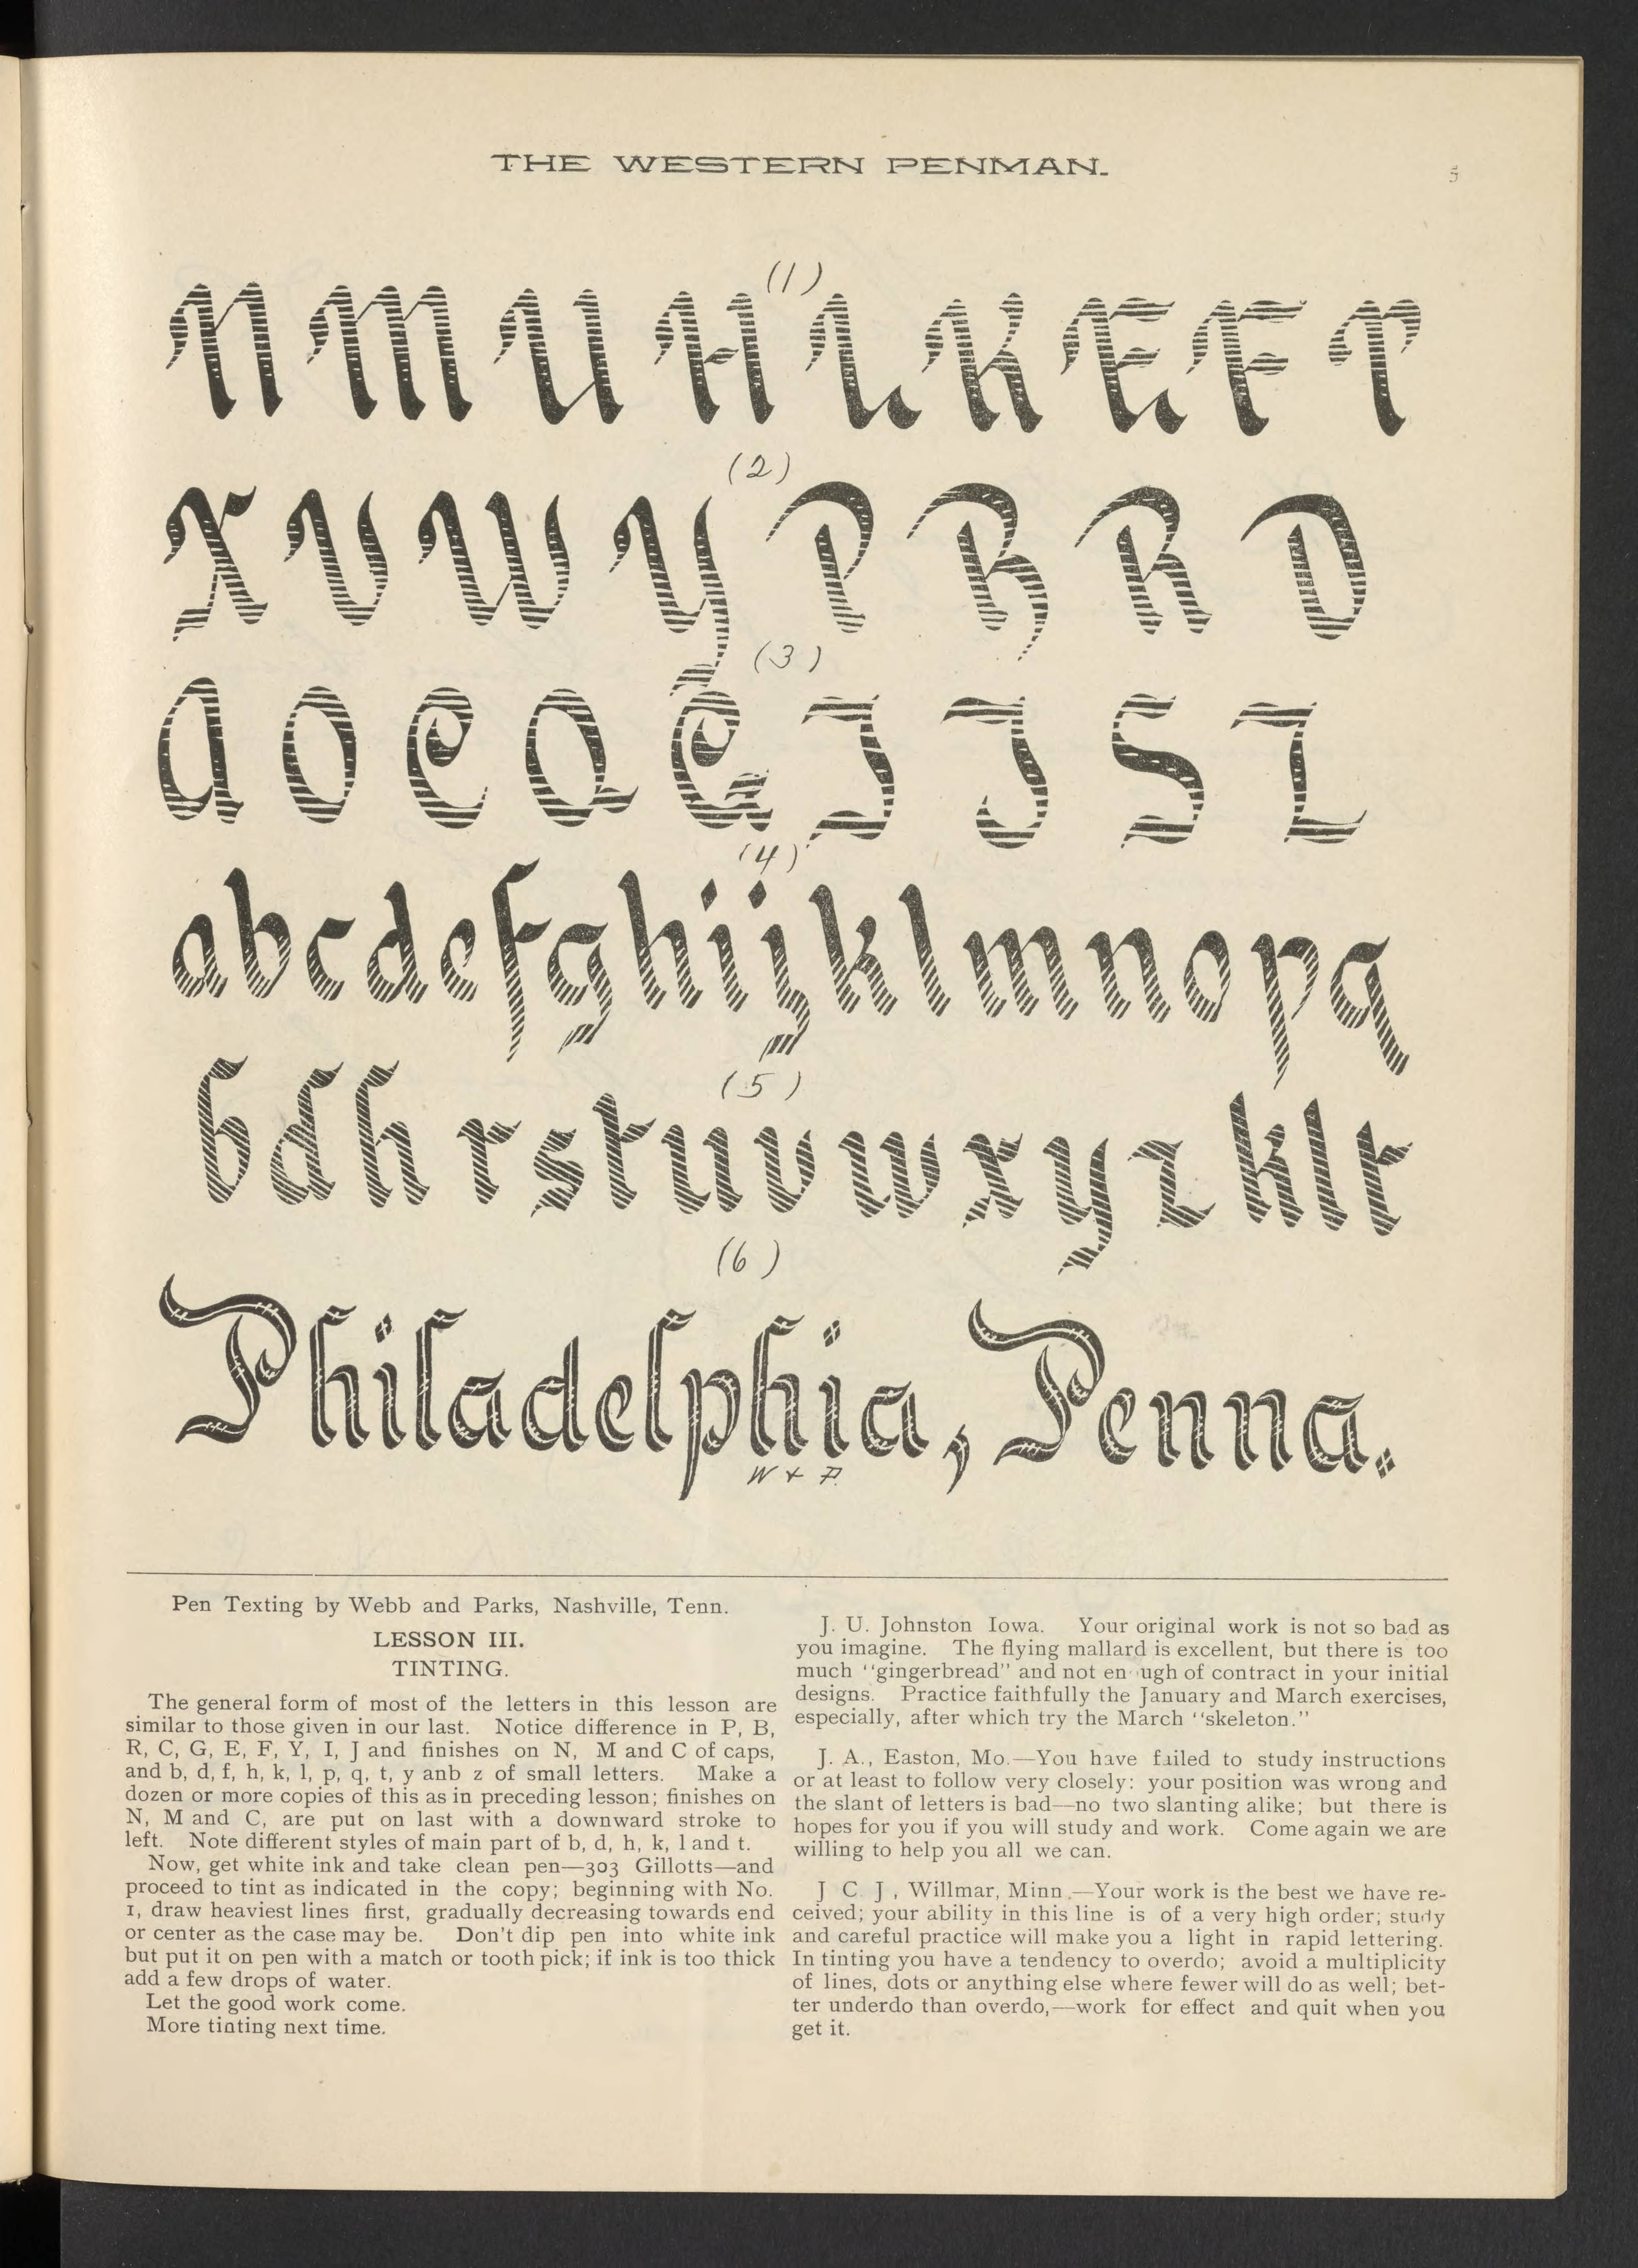 THE WESTERN PENMAN.
5
(1)
N M U H L K E F T
(2)
X V W Y P B R D
(3)
A O C Q G I J S Z
(4)
a b c d e f g h i j k l m n o p q
(5)
b d h r s t u v w x y z k l t
(6)
Philadelphia, Penna.
W & P.
Pen Texting by Webb and Parks, Nashville, Tenn.
LESSON III.
TINTING.
The general form of most of the letters in this lesson are
similar to those given in our last. Notice difference in P, B,
R, C, G, E, F, Y, I, J and finishes on N, M and C of caps,
and b, d, f, h, k, l, p, q, t, y anb z of small letters. Make a
dozen or more copies of this as in preceding lesson; finishes on
N, M and C, are put on last with a downward stroke to
left. Note different styles of main part of b, d, h, k, l and t.
Now, get white ink and take clean pen—303 Gillotts—and
proceed to tint as indicated in the copy; beginning with No.
1, draw heaviest lines first, gradually decreasing towards end
or center as the case may be. Don't dip pen into white ink
but put it on pen with a match or tooth pick; if ink is too thick
add a few drops of water.
Let the good work come.
More tinting next time.
J. U. Johnston Iowa. Your original work is not so bad as
you imagine. The flying mallard is excellent, but there is too
much "gingerbread" and not en ugh of contract in your initial
designs. Practice faithfully the January and March exercises,
especially, after which try the March "skeleton."
J. A., Easton, Mo.—You have failed to study instructions
or at least to follow very closely: your position was wrong and
the slant of letters is bad—no two slanting alike; but there is
hopes for you if you will study and work. Come again we are
willing to help you all we can.
J C J , Willmar, Minn.—Your work is the best we have re-
ceived; your ability in this line is of a very high order; study
and careful practice will make you a light in rapid lettering.
In tinting you have a tendency to overdo; avoid a multiplicity
of lines, dots or anything else where fewer will do as well; bet-
ter underdo than overdo,—work for effect and quit when you
get it.